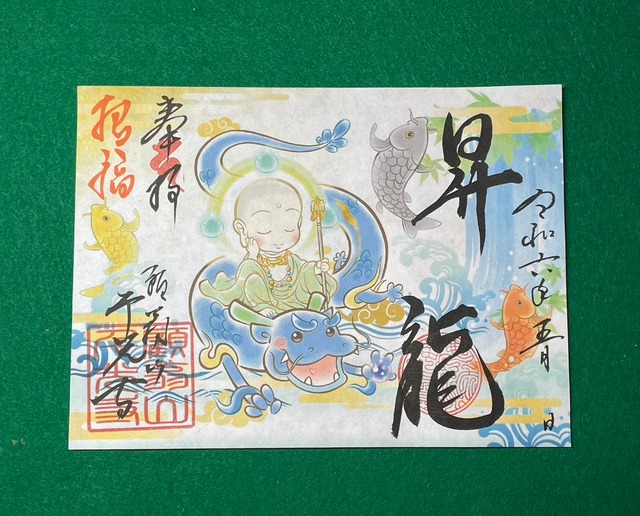 令和六年五月 日
昇龍
奉拝
招福
千光寺